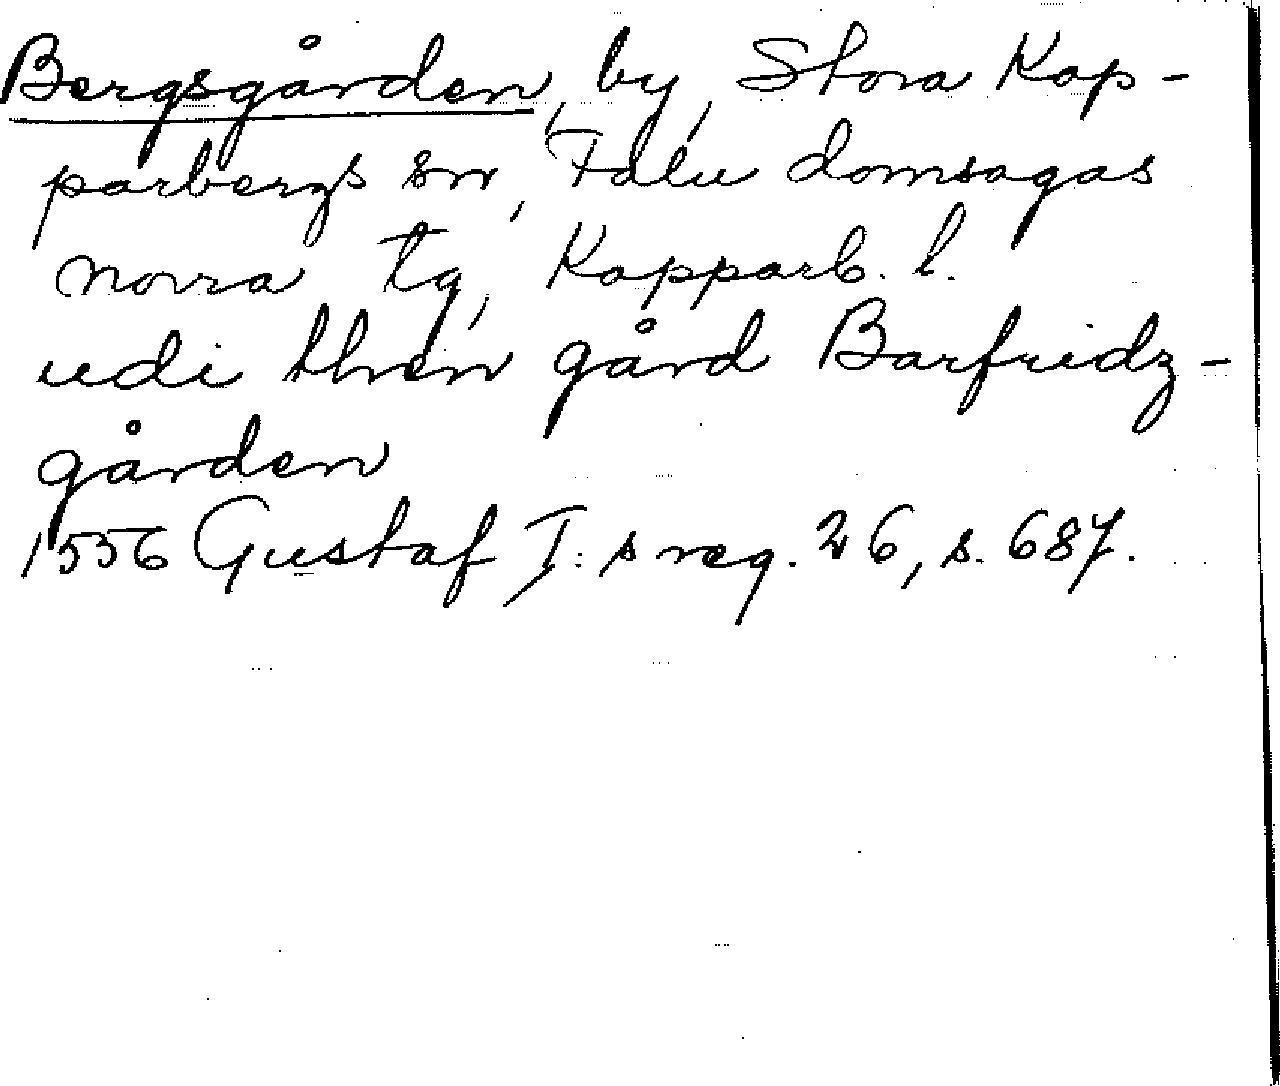 Bergsgården, by, Stora Kop-
parbergs sn, Falu domsagas
norra tg, Kopparb. l.
udi then gård Barfridz-
gården
1556 Gustaf I:s reg. 26, s. 687.